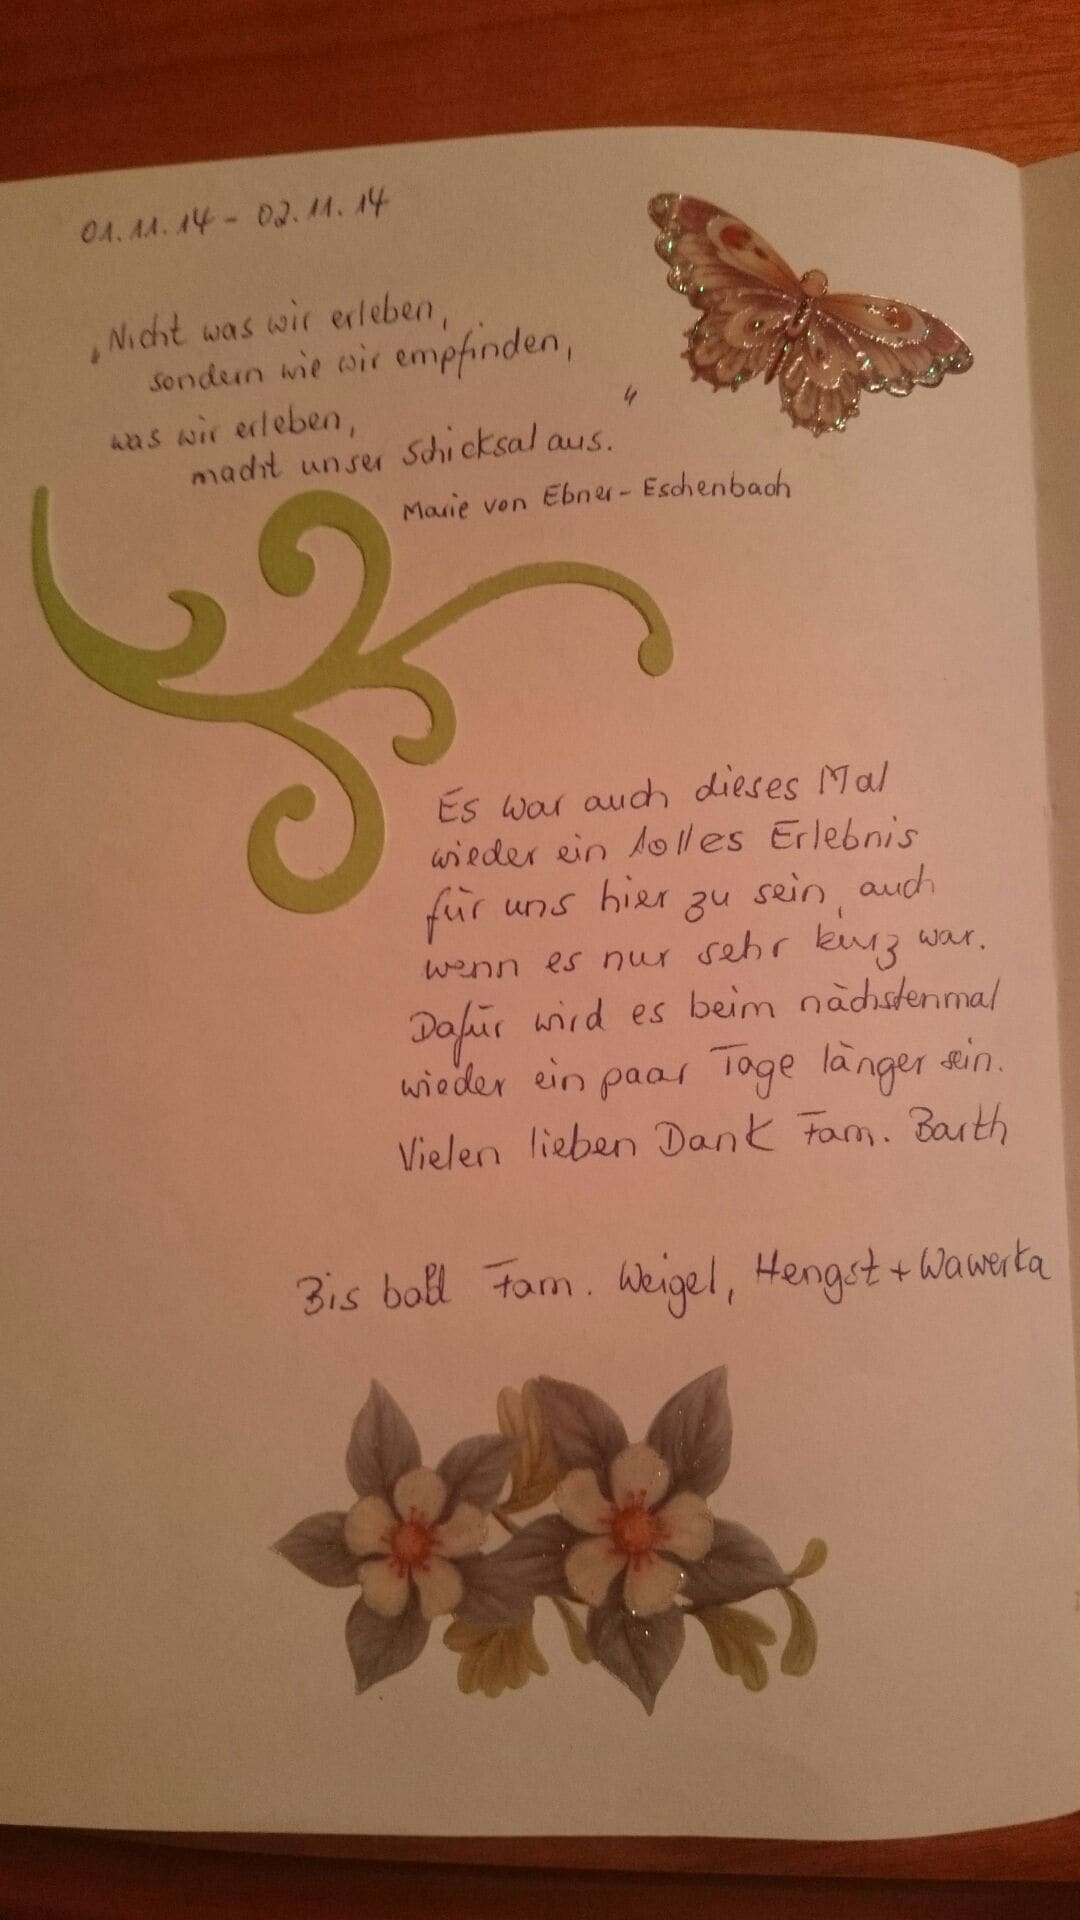 01.11.14 - 02.11.14
„Nicht was wir erleben,
sondern wie wir empfinden,
was wir erleben,
macht unser Schicksal aus.“
Marie von Ebner-Eschenbach
Es war auch dieses Mal
wieder ein tolles Erlebnis
für uns hier zu sein, auch
wenn es nur sehr kurz war.
Dafür wird es beim nächstenmal
wieder ein paar Tage länger sein.
Vielen lieben Dank Fam. Barth
Bis bald Fam. Weigel, Hengst + Wawerka